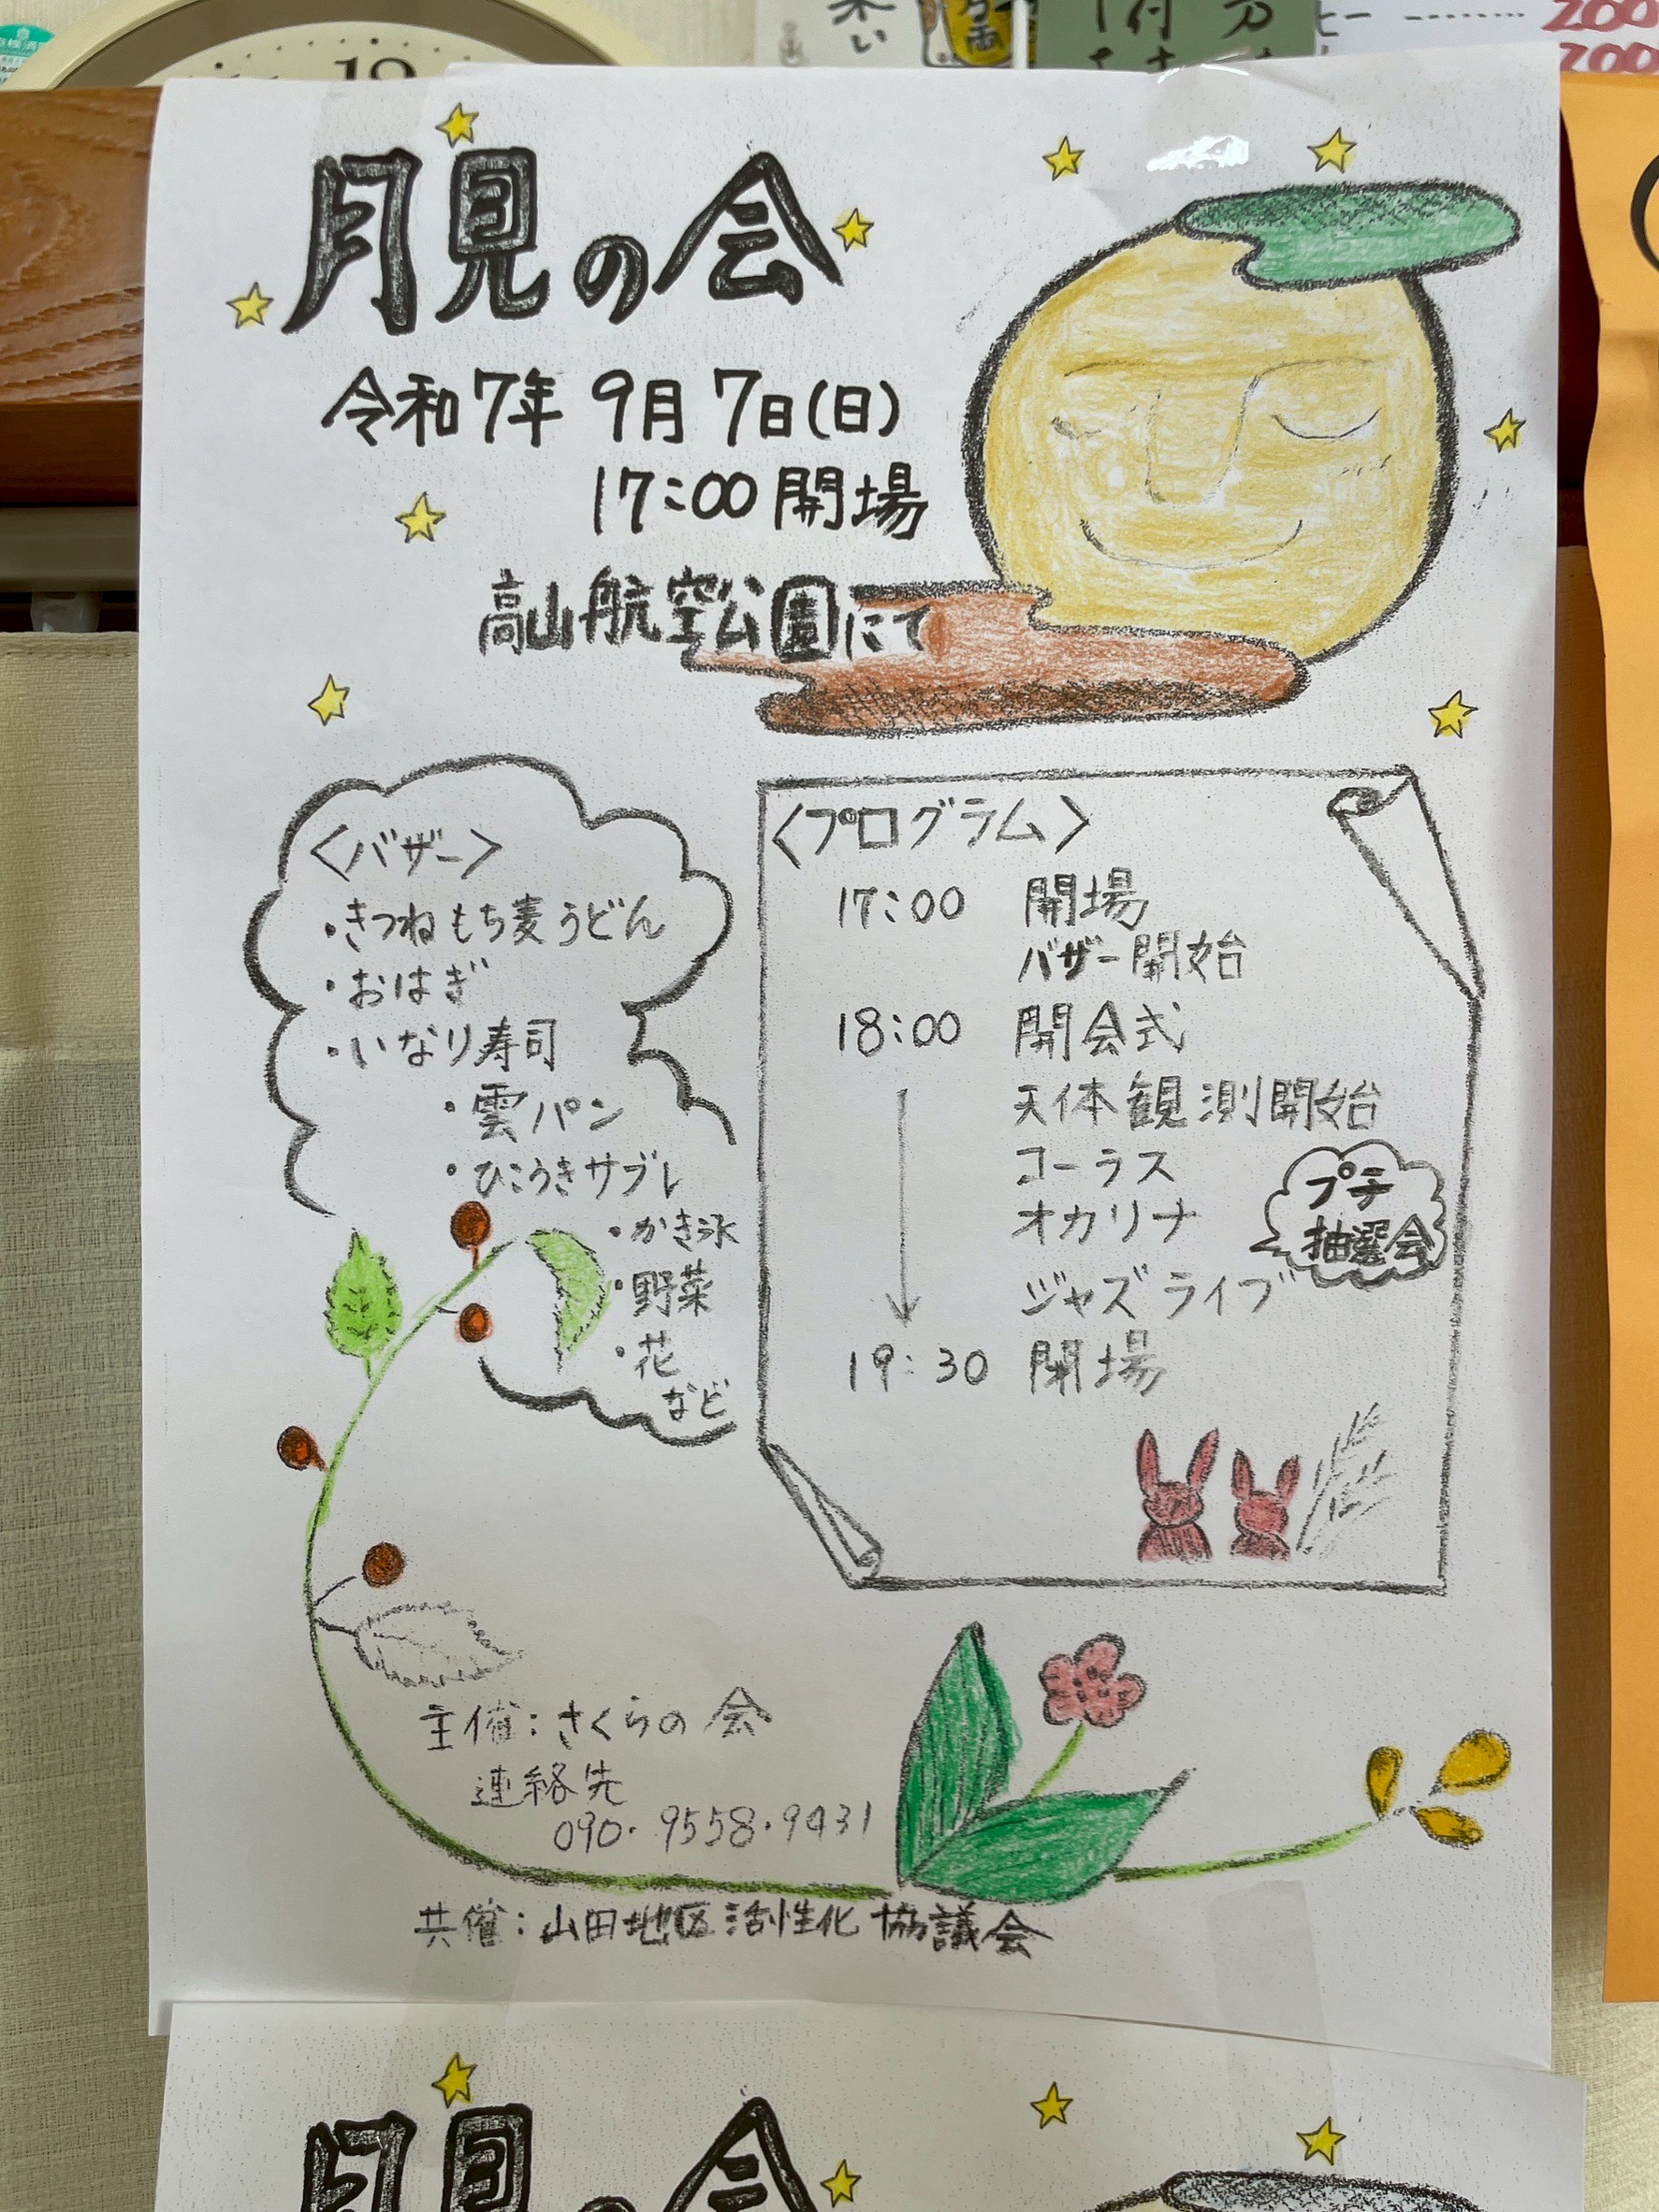 月見の会
令和7年 9月 7日(日)
17:00 開場
高山航空公園にて
<バザー>
・きつねもち麦うどん
・おはぎ
・いなり寿司
・雲パン
・ひこうきサブレ
・かき氷
・野菜
・花
など
<プログラム>
17:00 開場
バザー開始
18:00 開会式
天体観測開始
コーラス
オカリナ
ジャズライブ
19:30 閉場
プチ
抽選会
主催:さくらの会
連絡先
090・9558・9431
共催:山田地区活性化協議会
月見の会
12
200
200